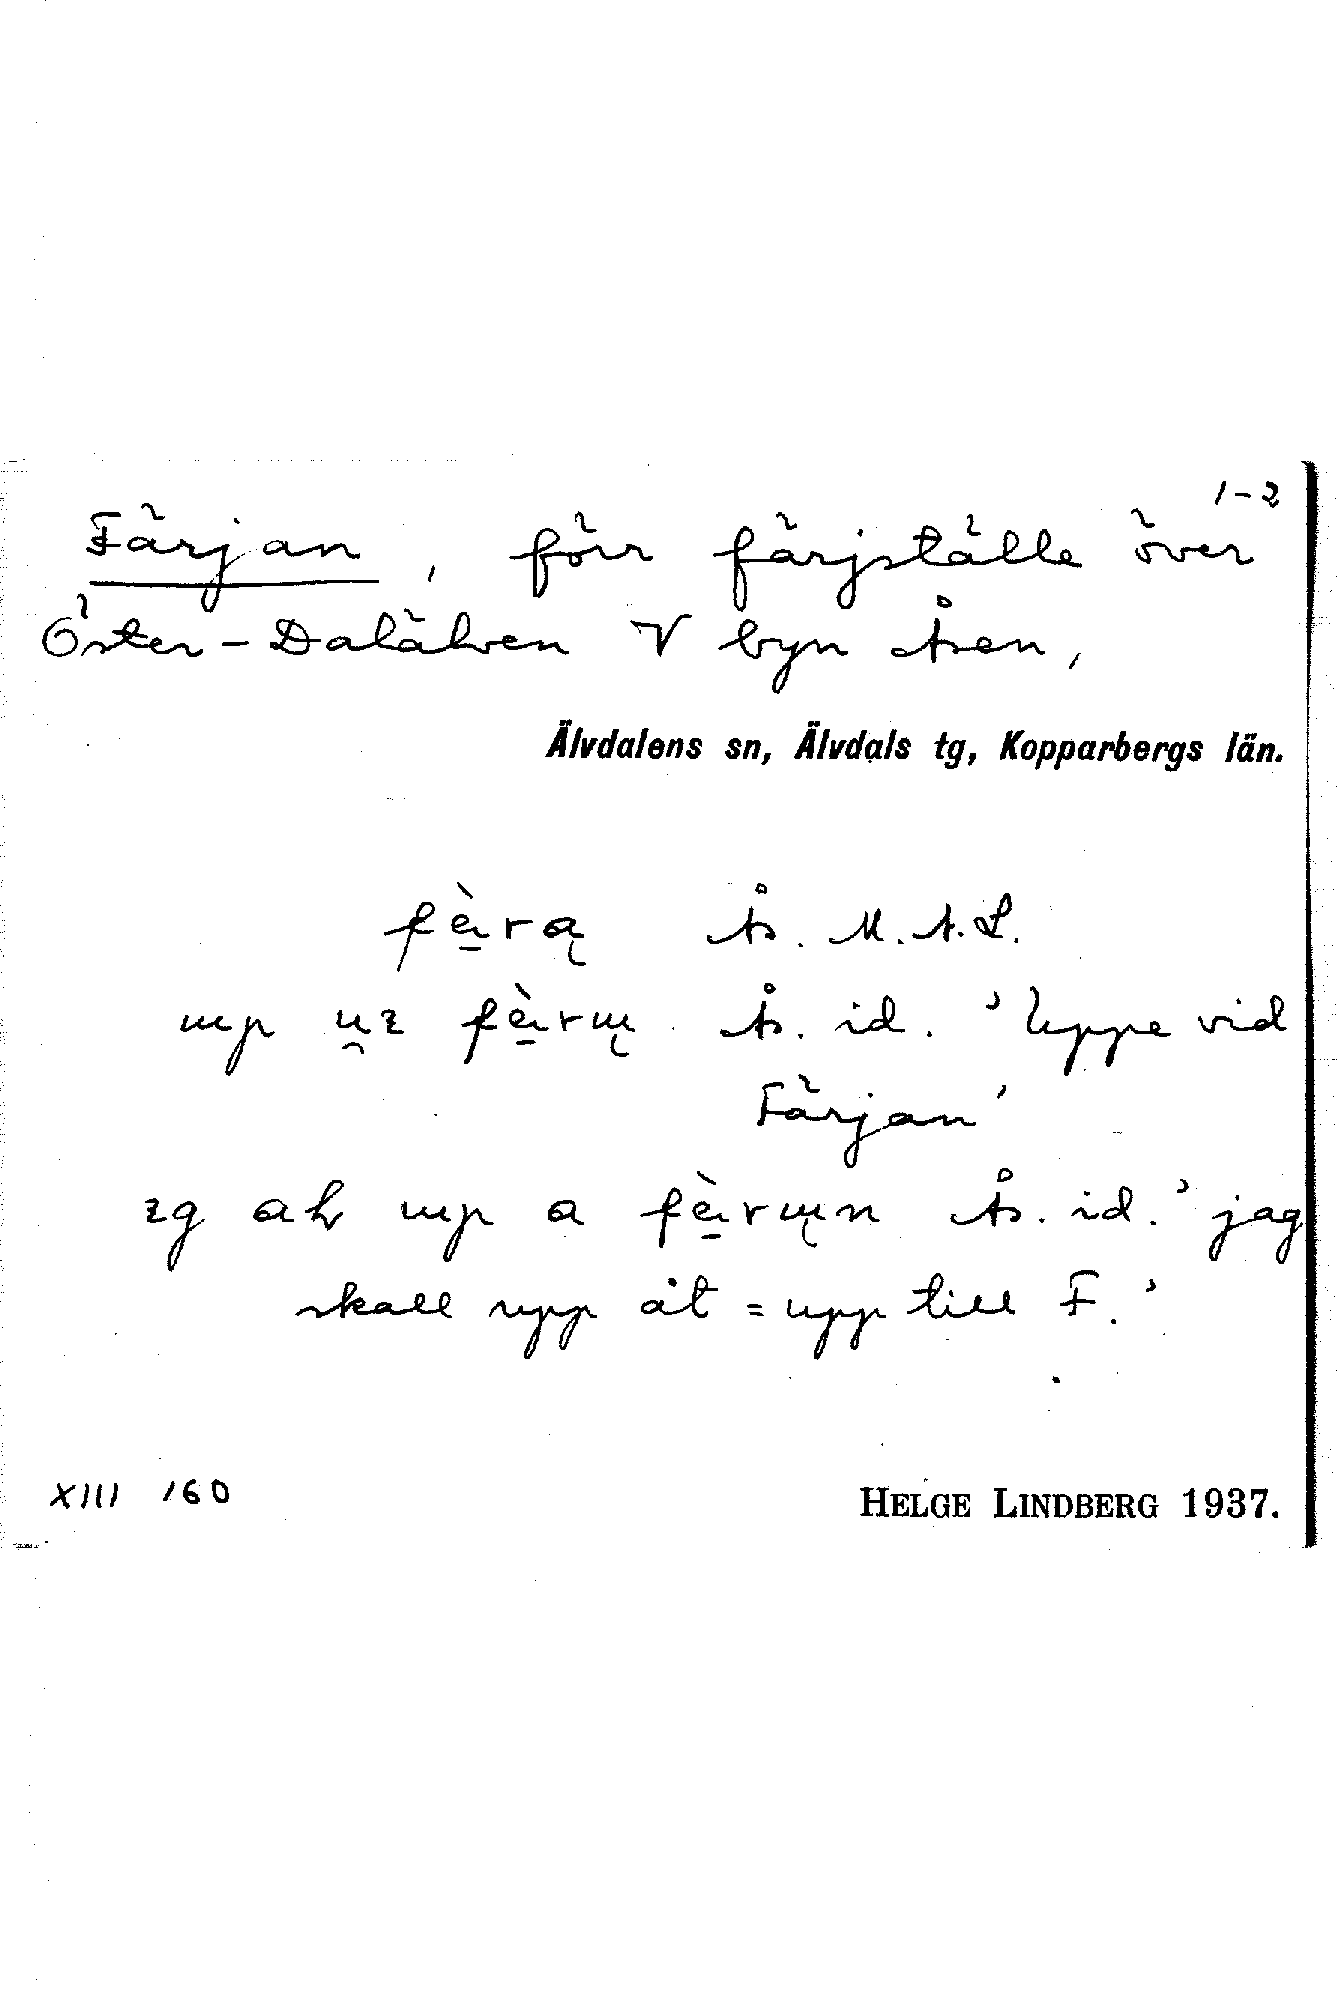 1-2
Färjan, förr färjställe över
Öster-Dalälven V byn Åsen,
Älvdalens sn, Älvdals tg, Kopparbergs län.
fè̠rą Ås. M.A.L.
up u̯ɪ fè̠rɯ̨ Ås. id. 'Uppe vid
Färjan'
ɪg ak up a fè̠rɯ̨n Ås. id. 'jag
skall upp åt = upp till F.'
XIII 160
HELGE LINDBERG 1937.